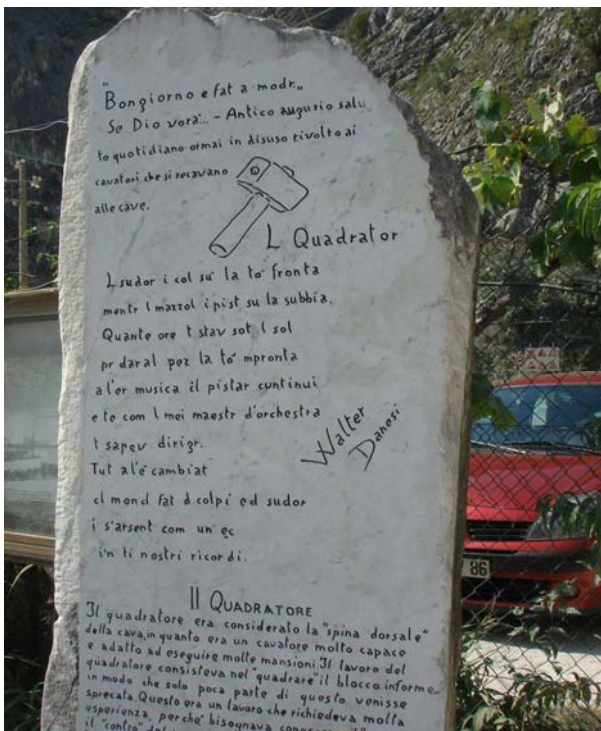 "Bongiorno e fat a modr"
Se Dio vorà... - Antico augurio salu
to quotidiano ormai in disuso rivolto ai
cavatori che si recavano
alle cave.
L Quadrator
L sudor i col su' la to' fronta
mentr l mazzol i pist su la subbia.
Quante ore t stav sot l sol
pr daral pez la to' mpronta
al'er musica èl pistar cuntinui
e te com l mei maestr d'orchestra
t sapev dirigr.
Tut al'é cambiat
cl mond fat d colpi ed sudor
i s'arsent com un ec
in ti nostri ricordi.
Walter
Danesi
Il QUADRATORE
Il quadratore era considerato la "spina dorsale"
della cava, in quanto era un cavatore molto capace
e adatto ad eseguire molte mansioni. Il lavoro del
quadratore consisteva nel "quadrare" il blocco informe
in modo che solo poca parte di questo venisse
sprecata. Questo era un lavoro che richiedeva molta
esperienza, perchè bisognava
il "contro"
86